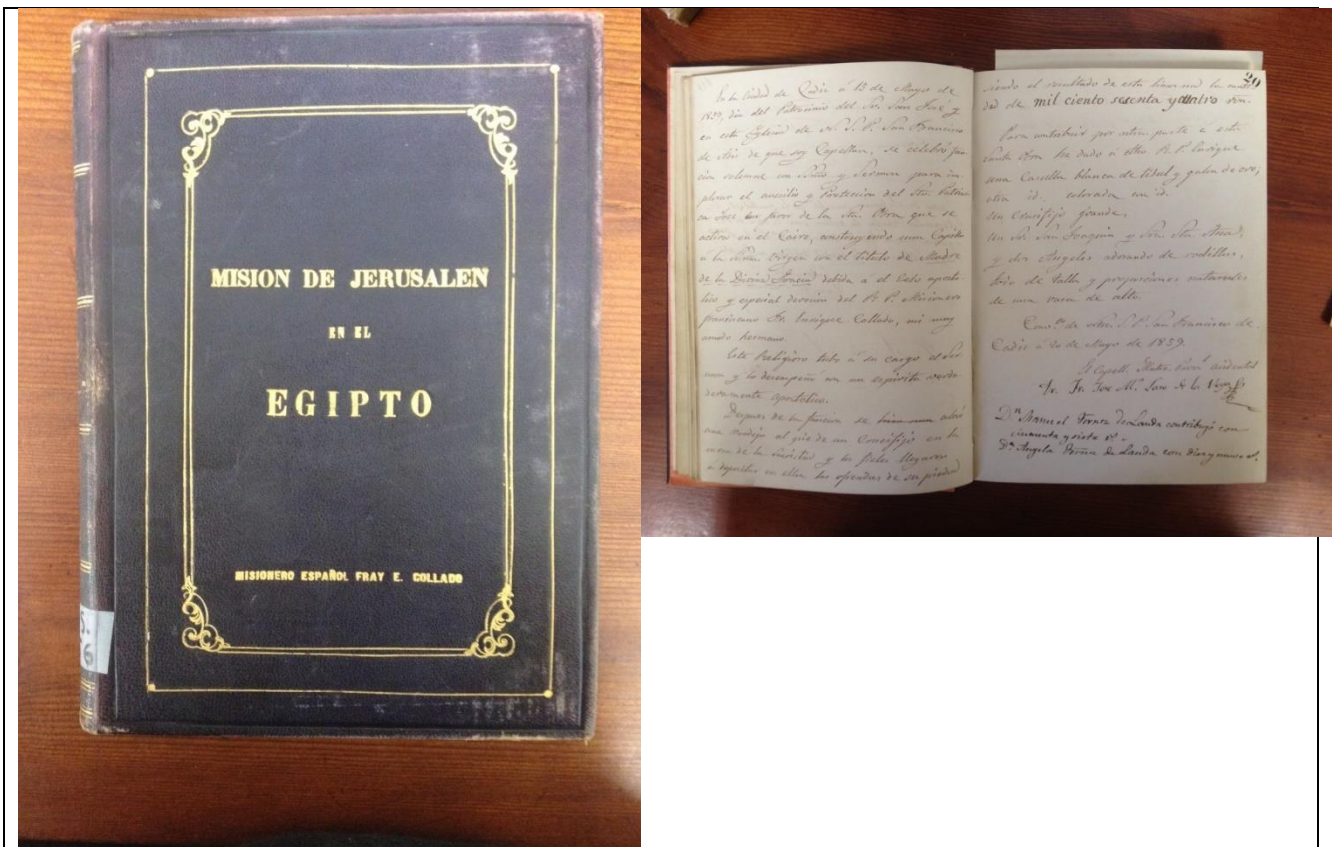 MISION DE JERUSALEN
EN EL
EGIPTO
MISIONERO ESPAÑOL FRAY E. COLLADO
S.
6
En la Ciudad de Cadiz á 13 de Mayo de
1859, dia del Patrocinio del Sor. San José y
en esta Iglesia de N. S. P. San Francisco
de Asis de que soy Capellan, se celebró fun
cion solemne con y Sermon para im
plorar el ausilio y Proteccion del Sto. Patriar
ca José en favor de la Sta. Obra, que se
activa en el Cairo, construyendo una Capilla
á la Virgen con el titulo de Madre
de la Divina Gracia debida á el Celo aposto
lico y especial devocion del R. P. Misionero
franciscano Fr. Enrique Collado, mi muy
amado hermano.
Este Religioso tubo á su cargo el Ser
mon y lo desempeñó con un espiritu verda
deramente apostolico.
Despues de la funcion se
una al pie de un Crucifijo en la
de la y los fieles llegaron
á depositar en ella las ofrendas de su piedad
29
siendo el resultado de esta la canti
dad de mil ciento sesenta y cuatro
Para contribuir por mi parte á esta
Santa Obra he dado á dho. R. P. Enrique
una Casulla blanca de tisul y galon de oro;
otra id. colorada con id.
Un Crucifijo grande,
Un Sr. San Joaquin y Sra. Sta. Ana,
y dos Angeles adorando de rodillas,
todo de talla y proporciones naturales
de una vara de alto.
de ntro. S. P. San Francisco de
Cadiz á 20 de Mayo de 1859.
El Capelln.
Fr. José Ma. de la
Dn. Manuel de Landa contribuyó con
cincuenta y siete rs.
Da. Angela de Landa con diez y nueve rs.